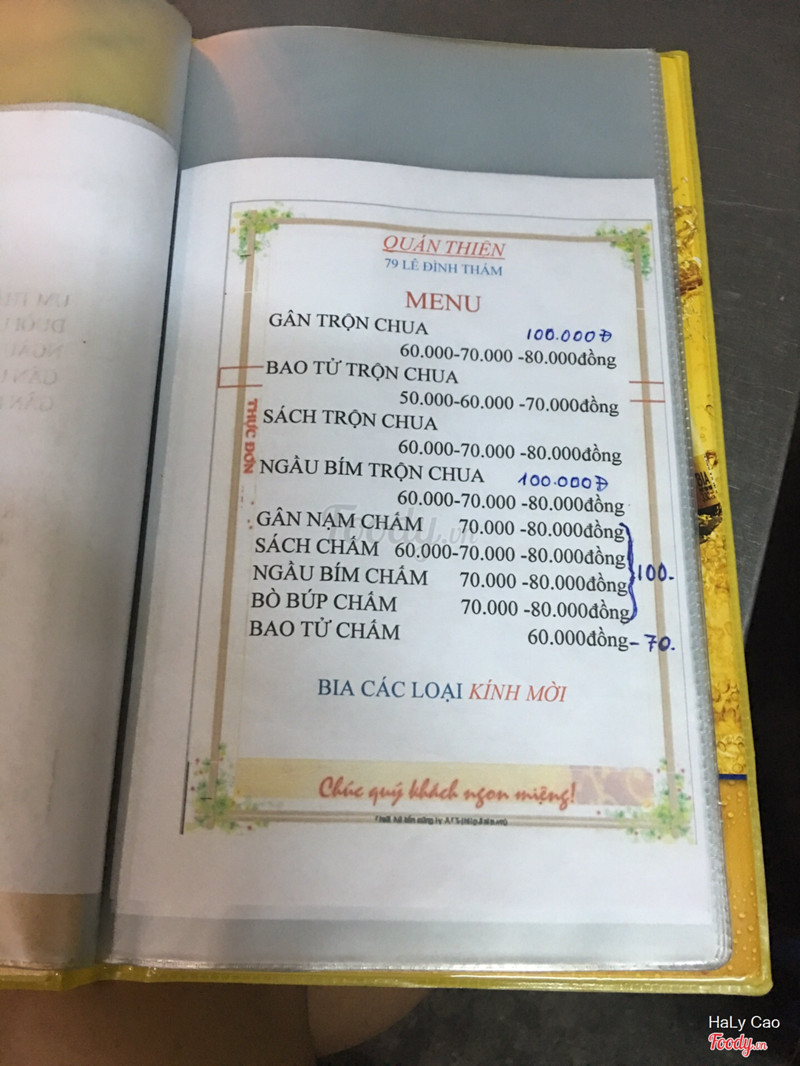 QUÁN THIÊN
79 LÊ ĐÌNH THÁM
MENU
GÂN TRỘN CHUA 100.000Đ
60.000-70.000 -80.000đồng
BAO TỬ TRỘN CHUA
50.000-60.000 -70.000đồng
SÁCH TRỘN CHUA
60.000-70.000 -80.000đồng
THỰC ĐƠN
NGẦU BÍM TRỘN CHUA 100.000Đ
60.000-70.000 -80.000đồng
GÂN NẠM CHẤM 70.000 -80.000đồng
SÁCH CHẤM 60.000-70.000 -80.000đồng
100.-
NGẦU BÍM CHẤM 70.000 -80.000đồng
BÒ BÚP CHẤM 70.000 -80.000đồng
BAO TỬ CHẤM 60.000đồng - 70.
BIA CÁC LOẠI KÍNH MỜI
Chúc quý khách ngon miệng!
Foody.vn
BIA
HaLy Cao
Foody.vn